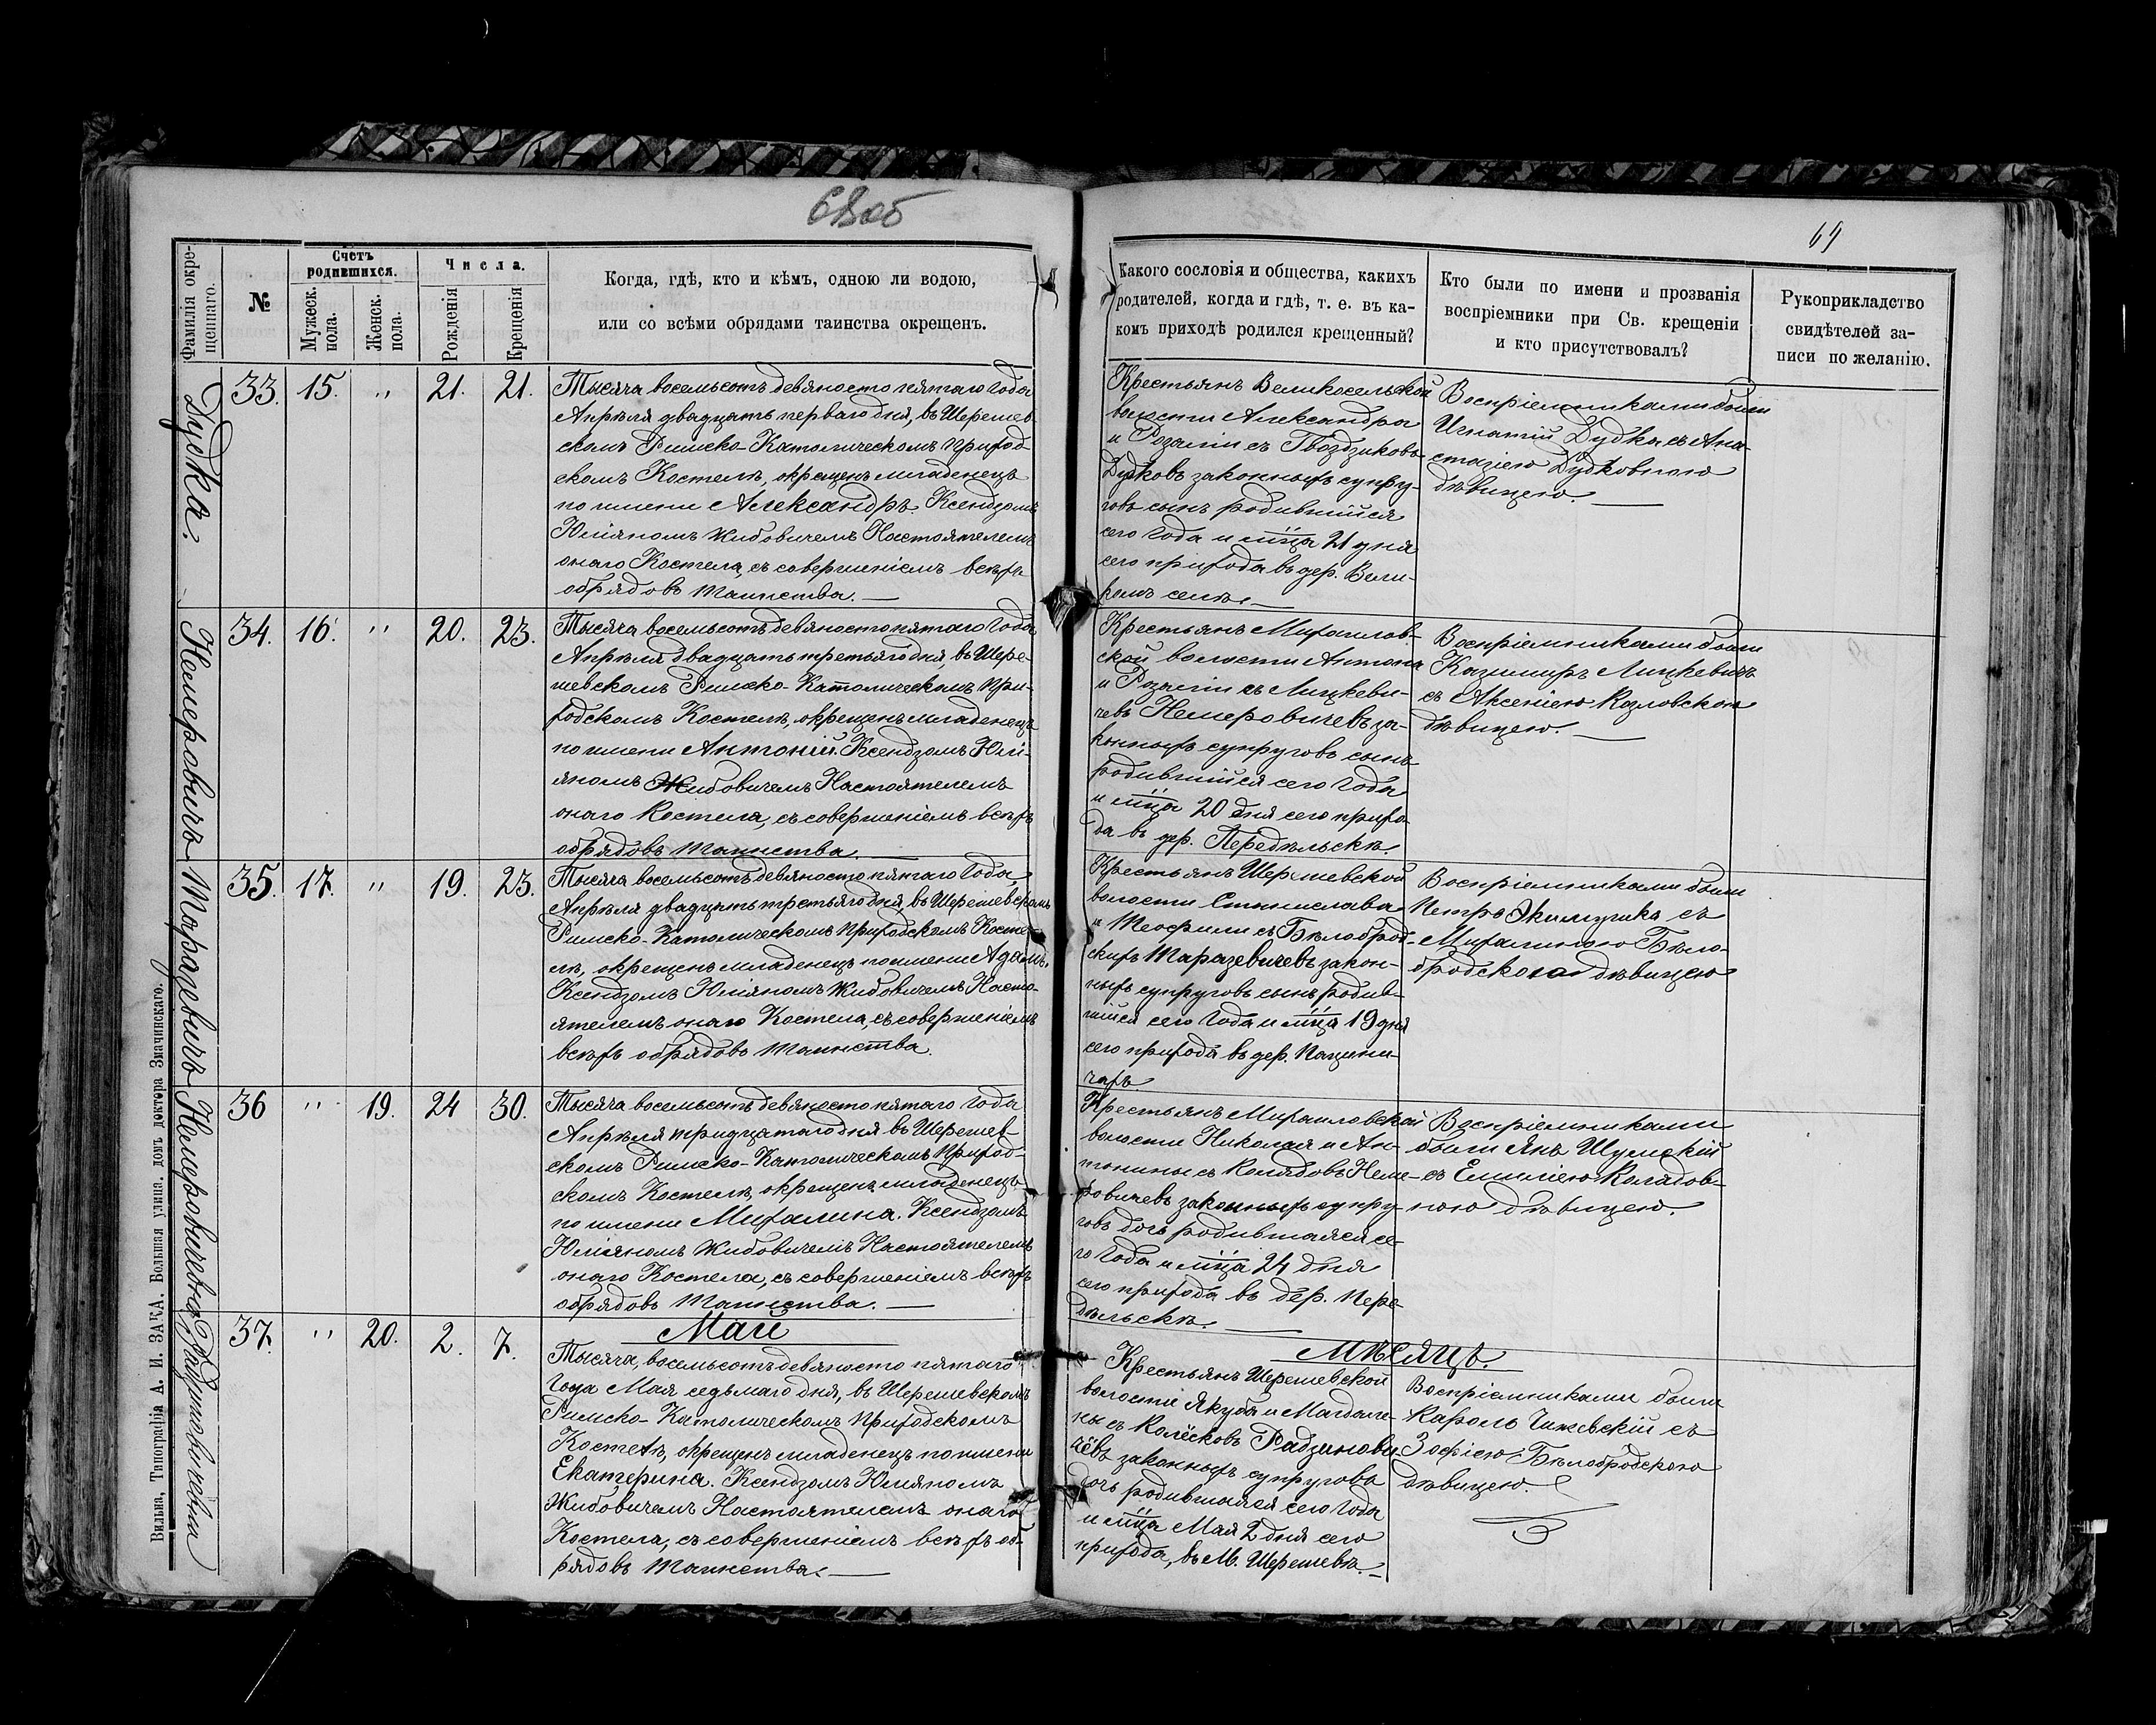 68об
69
Фамилія окре-
щеннаго.
№
Счетъ
родившихся.
Мужеск.
пола.
Женск.
пола.
Числа.
Рожденія
Крещенія
Когда, гдѣ, кто и кѣмъ, одною ли водою,
или со всѣми обрядами таинства окрещенъ.
Какого сословія и общества, какихъ
родителей, когда и гдѣ, т. е. въ ка-
комъ приходѣ родился крещенный?
Кто были по имени и прозванія
воспріемники при Св. крещеніи
и кто присутствовалъ?
Рукоприкладство
свидѣтелей за-
писи по желанію.
Дудка.
33. 15. " 21. 21.
Тысяча восемьсотъ девяносто пятаго года
Апрѣля двадцать перваго дня, въ Шерешев-
скомъ Римско-Католическомъ Приход-
скомъ Костелѣ, окрещенъ младенецъ
по имени Александръ. Ксендзомъ
Юліяномъ Жибовичемъ Настоятелемъ
онаго Костела, съ совершеніемъ всѣхъ
обрядовъ Таинства.
Крестьянъ Великосельской
волости Александра
и Розаліи съ Гвоздзиковъ
Дудковъ законныхъ супру-
говъ сынъ родившійся
сего года и мѣца 21 дня
сего прихода въ дер. Вели-
комъ селѣ.
Воспріемниками были
Игнатій Дудка съ Ана-
стазіею Дудковною
дѣвицею.
Немеровичъ
34. 16. " 20. 23.
Тысяча восемьсотъ девяносто пятаго года
Апрѣля двадцать третьяго дня, въ Шере-
шевскомъ Римско-Католическомъ При-
ходскомъ Костелѣ, окрещенъ младенецъ
по имени Антоній. Ксендзомъ Юлі-
яномъ Жибовичемъ Настоятелемъ
онаго Костела, съ совершеніемъ всѣхъ
обрядовъ Таинства.
Крестьянъ Михайлов-
ской волости Антона
и Розаліи съ Лицкеви-
чевъ Немеровичевъ за-
конныхъ супруговъ сынъ
родившійся сего года
и мѣца 20 дня сего прихо-
да въ дер. Передѣльскѣ.
Воспріемниками были
Казимиръ Лицкевичъ
съ Аксеніею Козловскою
дѣвицею.
Таразевичъ
35. 17. " 19. 23.
Тысяча восемьсотъ девяносто пятаго года,
Апрѣля двадцать третьяго дня, въ Шерешевскомъ
Римско-Католическомъ Приходскомъ Косте-
лѣ, окрещенъ младенецъ по имени Адамъ.
Ксендзомъ Юліяномъ Жибовичемъ Насто-
ятелемъ онаго Костела, съ совершеніемъ
всѣхъ обрядовъ Таинства.
Крестьянъ Шерешевской
волости Станислава
и Теофили съ Бѣлоброд-
скихъ Таразевичевъ закон-
ныхъ супруговъ сынъ родив-
шійся сего года и мѣца 19 дня
сего прихода въ дер. Пацини-
чахъ.
Воспріемниками были
Петръ съ
Михалиною Бѣло-
бродскою дѣвицею
Немеровичевна
36 " 19. 24 30.
Тысяча восемьсотъ девяносто пятаго года
Апрѣля тридцатаго дня въ Шерешев-
скомъ Римско-Католическомъ Приход-
скомъ Костелѣ, окрещенъ младенецъ
по имени Михалина. Ксендзомъ
Юліяномъ Жибовичемъ Настоятелемъ
онаго Костела, съ совершеніемъ всѣхъ
обрядовъ Таинства.
Крестьянъ Михайловской
волости Николая и Ан-
тонины съ Колядовъ Неме-
ровичевъ законныхъ супру-
говъ дочь родившаяся се-
го года и мѣца 24 дня
сего прихода въ дер. Пере-
дѣльскѣ.
Воспріемниками
были Янъ Шумскій
съ Емиліею Колядов-
ною дѣвицею.
Май Мѣсяцъ.
Радзиновичевна
37. " 20. 2. 7.
Тысяча, восемьсотъ девяносто пятаго
года Мая седьмаго дня, въ Шерешевскомъ
Римско-Католическомъ Приходскомъ
Костелѣ, окрещенъ младенецъ по имени
Екатерина. Ксендзомъ Юліяномъ
Жибовичемъ Настоятелемъ онаго
Костела, съ совершеніемъ всѣхъ об-
рядовъ Таинства.
Крестьянъ Шерешевской
волостіе Якуба и Магдале-
ны съ Колёсковъ Радзинови-
чёвъ законныхъ супруговъ
дочь родившаяся сего года
и мѣца Мая 2 дня сего
прихода, въ М. Шерешевѣ.
Воспріемниками были
Кароль Чижевскій съ
Зофіею Бѣлобродскою
дѣвицею.
Вильна, Типографія А. И. ЗАКА. Большая улица, домъ доктора Значинскаго.